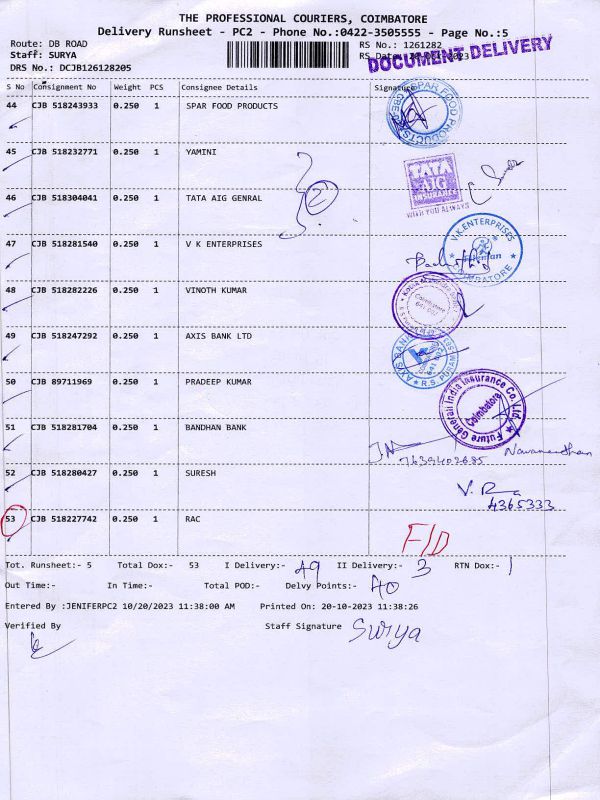 THE PROFESSIONAL COURIERS, COIMBATORE
Delivery Runsheet - PC2 - Phone No.:0422-3505555 - Page No.:5
Route: DB ROAD RS No.: 1261282
Staff: SURYA RS Date:
DOCUMENT DELIVERY
DRS No.: DCJB126128205
S No Consignment No Weight PCS Consignee Details Signature
44 CJB 518243933 0.250 1 SPAR FOOD PRODUCTS
SPAR FOOD PRODUCTS
45 CJB 518232771 0.250 1 YAMINI
TATA AIG INSURANCE
WITH YOU ALWAYS
46 CJB 518304041 0.250 1 TATA AIG GENRAL
2
47 CJB 518281540 0.250 1 V K ENTERPRISES
V.K.ENTERPRISES COIMBATORE
48 CJB 518282226 0.250 1 VINOTH KUMAR
Coimbatore
49 CJB 518247292 0.250 1 AXIS BANK LTD
AXIS BANK R.S. PURAM
50 CJB 89711969 0.250 1 PRADEEP KUMAR
Future Generali India Insurance Co. Ltd.
Coimbatore
51 CJB 518281704 0.250 1 BANDHAN BANK
7639402685
52 CJB 518280427 0.250 1 SURESH
4365333
53 CJB 518227742 0.250 1 RAC
F/D
Tot. Runsheet:- 5 Total Dox:- 53 I Delivery:- 49 II Delivery:- 3 RTN Dox:- 1
Out Time:- In Time:- Total POD:- Delvy Points:- 40
Entered By :JENIFERPC2 10/20/2023 11:38:00 AM Printed On: 20-10-2023 11:38:26
Verified By Staff Signature Surya